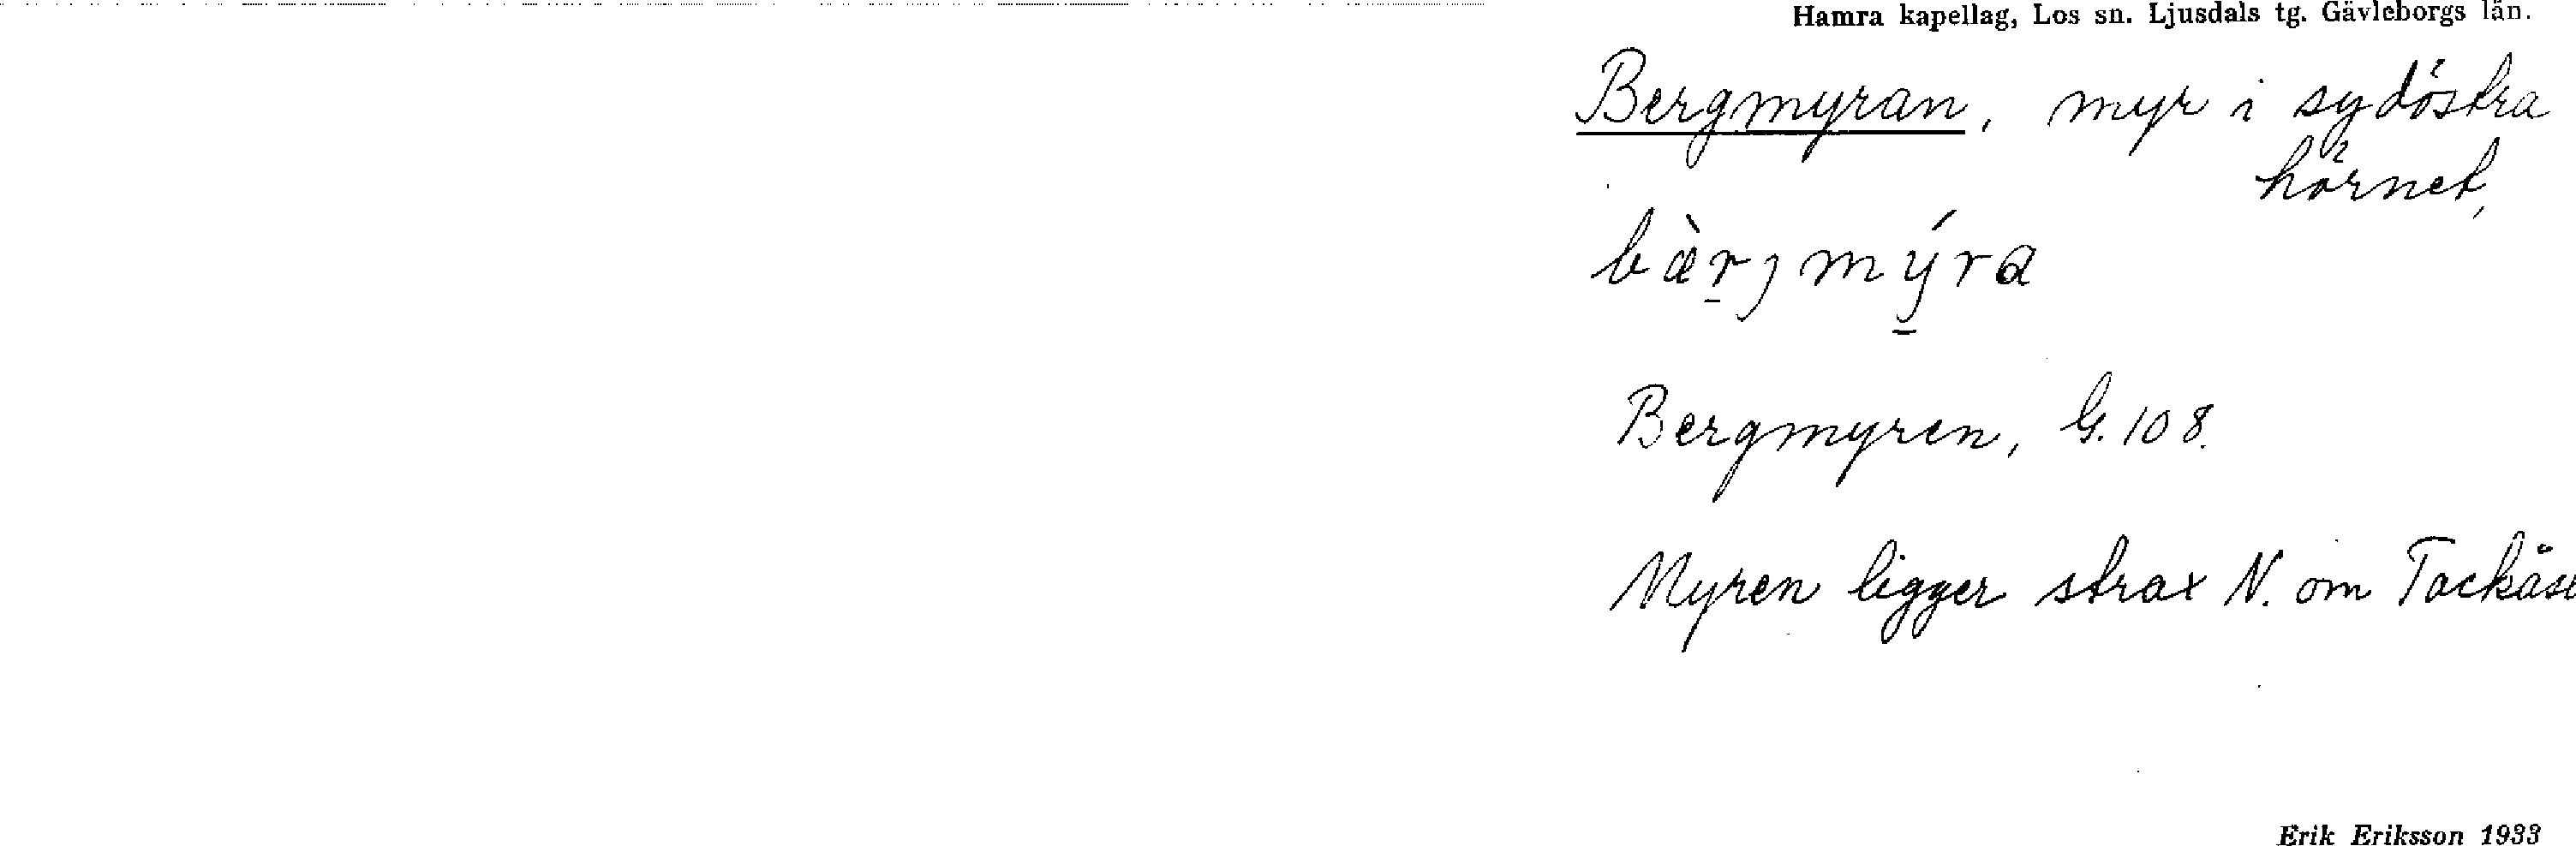 Hamra kapellag, Los sn. Ljusdals tg. Gävleborgs län.
Bergmyran, myr i sydöstra
hörnet,
bæ̀r̠jmý̠ra
Bergmyren, G. 108.
Myren ligger strax N. om
Erik Eriksson 1933